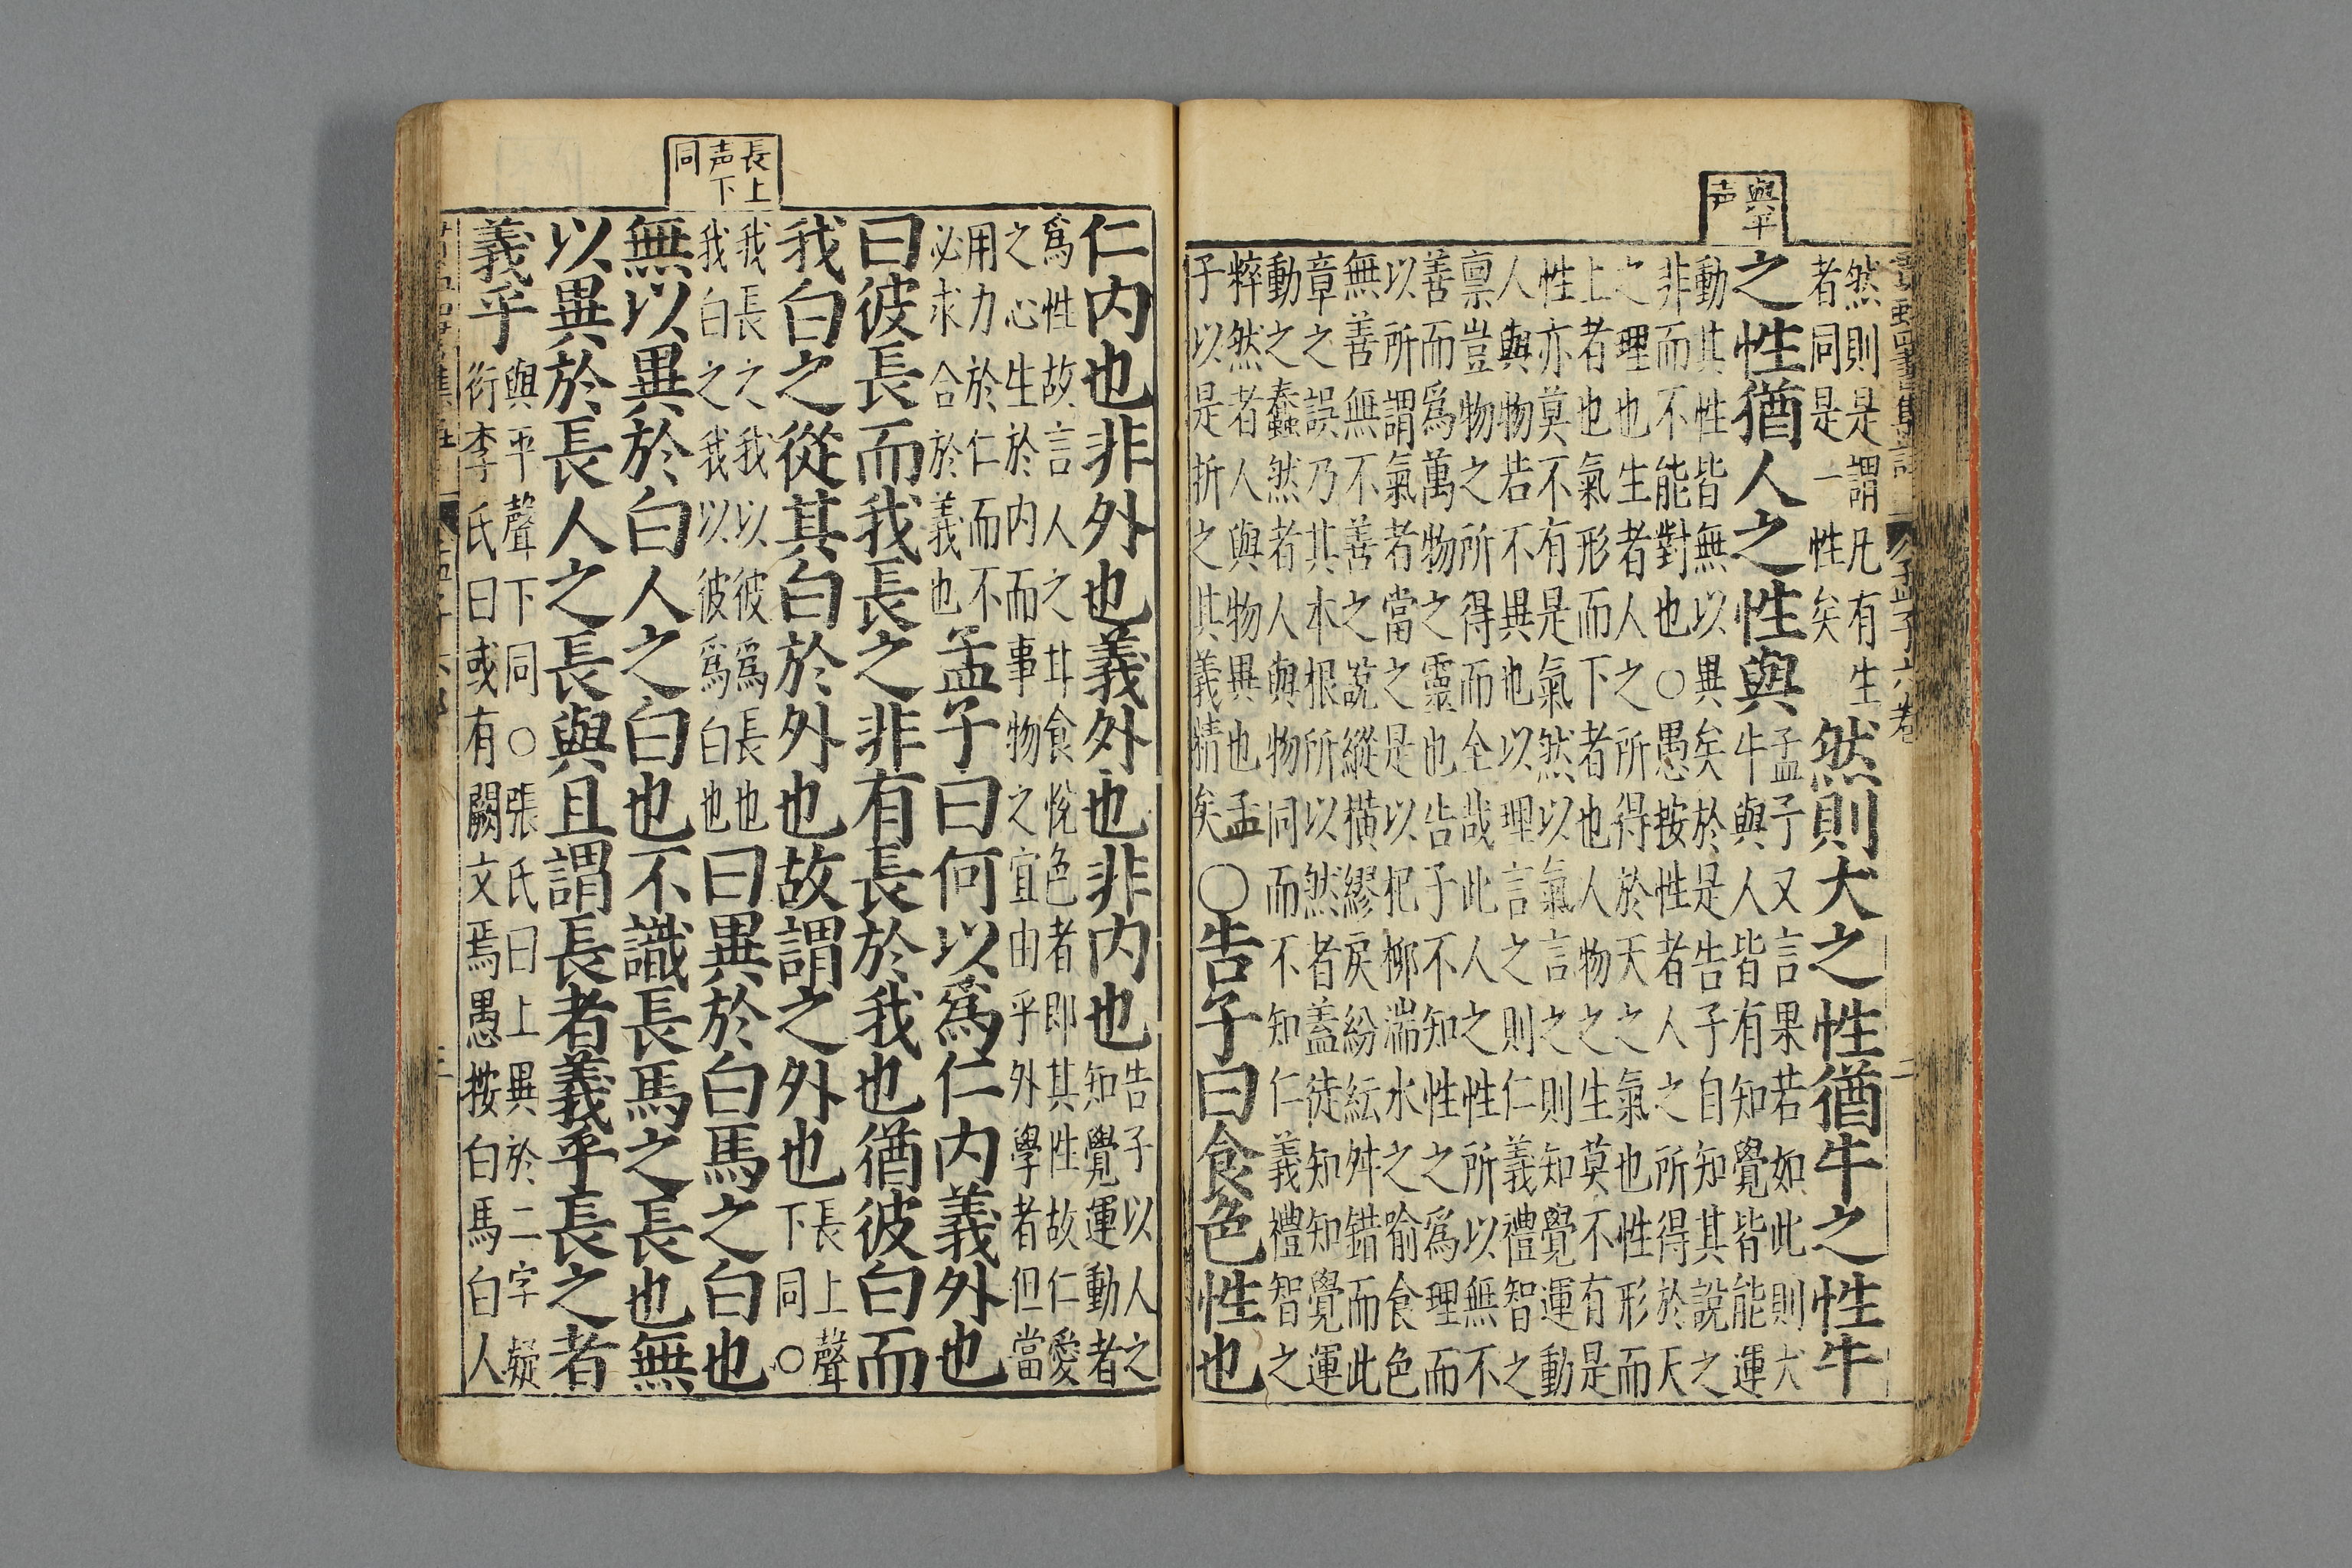 與平
声
孟子六卷 二
然則是謂凡有生
者同是一性矣
然則犬之性猶牛之性牛
之性猶人之性與
孟子又言果若如此則犬
牛與人皆有知覺皆能運
動其性皆無以異矣於是告子自知其說之
非而不能對也○愚按性者人之所得於天
之理也生者人之所得於天之氣也性形而
上者也氣形而下者也人物之生莫不有是
性亦莫不有是氣然以氣言之則知覺運動
人與物若不異也以理言之則仁義禮智之
禀豈物之所得而全哉此人之性所以無不
善而爲萬物之靈也告子不知性之爲理而
以所謂氣者當之是以杞柳湍水之喻食色
無善無不善之說縱橫繆戾紛紜舛錯而此
章之誤乃其本根所以然者蓋徒知知覺運
動之蠢然者人與物同而不知仁義禮智之
粹然者人與物異也孟
子以是折之其義精矣
○告子曰食色性也
長上
声下
同
仁内也非外也義外也非内也
告子以人之
知覺運動者
爲性故言人之甘食恱色者即其性故仁愛
之心生於内而事物之宜由乎外學者但當
用力於仁而不
必求合於義也
孟子曰何以爲仁内義外也
曰彼長而我長之非有長於我也猶彼白而
我白之從其白於外也故謂之外也
長上聲
下同○
我長之我以彼爲長也
我白之我以彼爲白也
曰異於白馬之白也
無以異於白人之白也不識長馬之長也無
以異於長人之長與且謂長者義乎長之者
義乎
與平聲下同○張氏曰上異於二字疑
衍李氏曰或有闕文焉愚按白馬白人